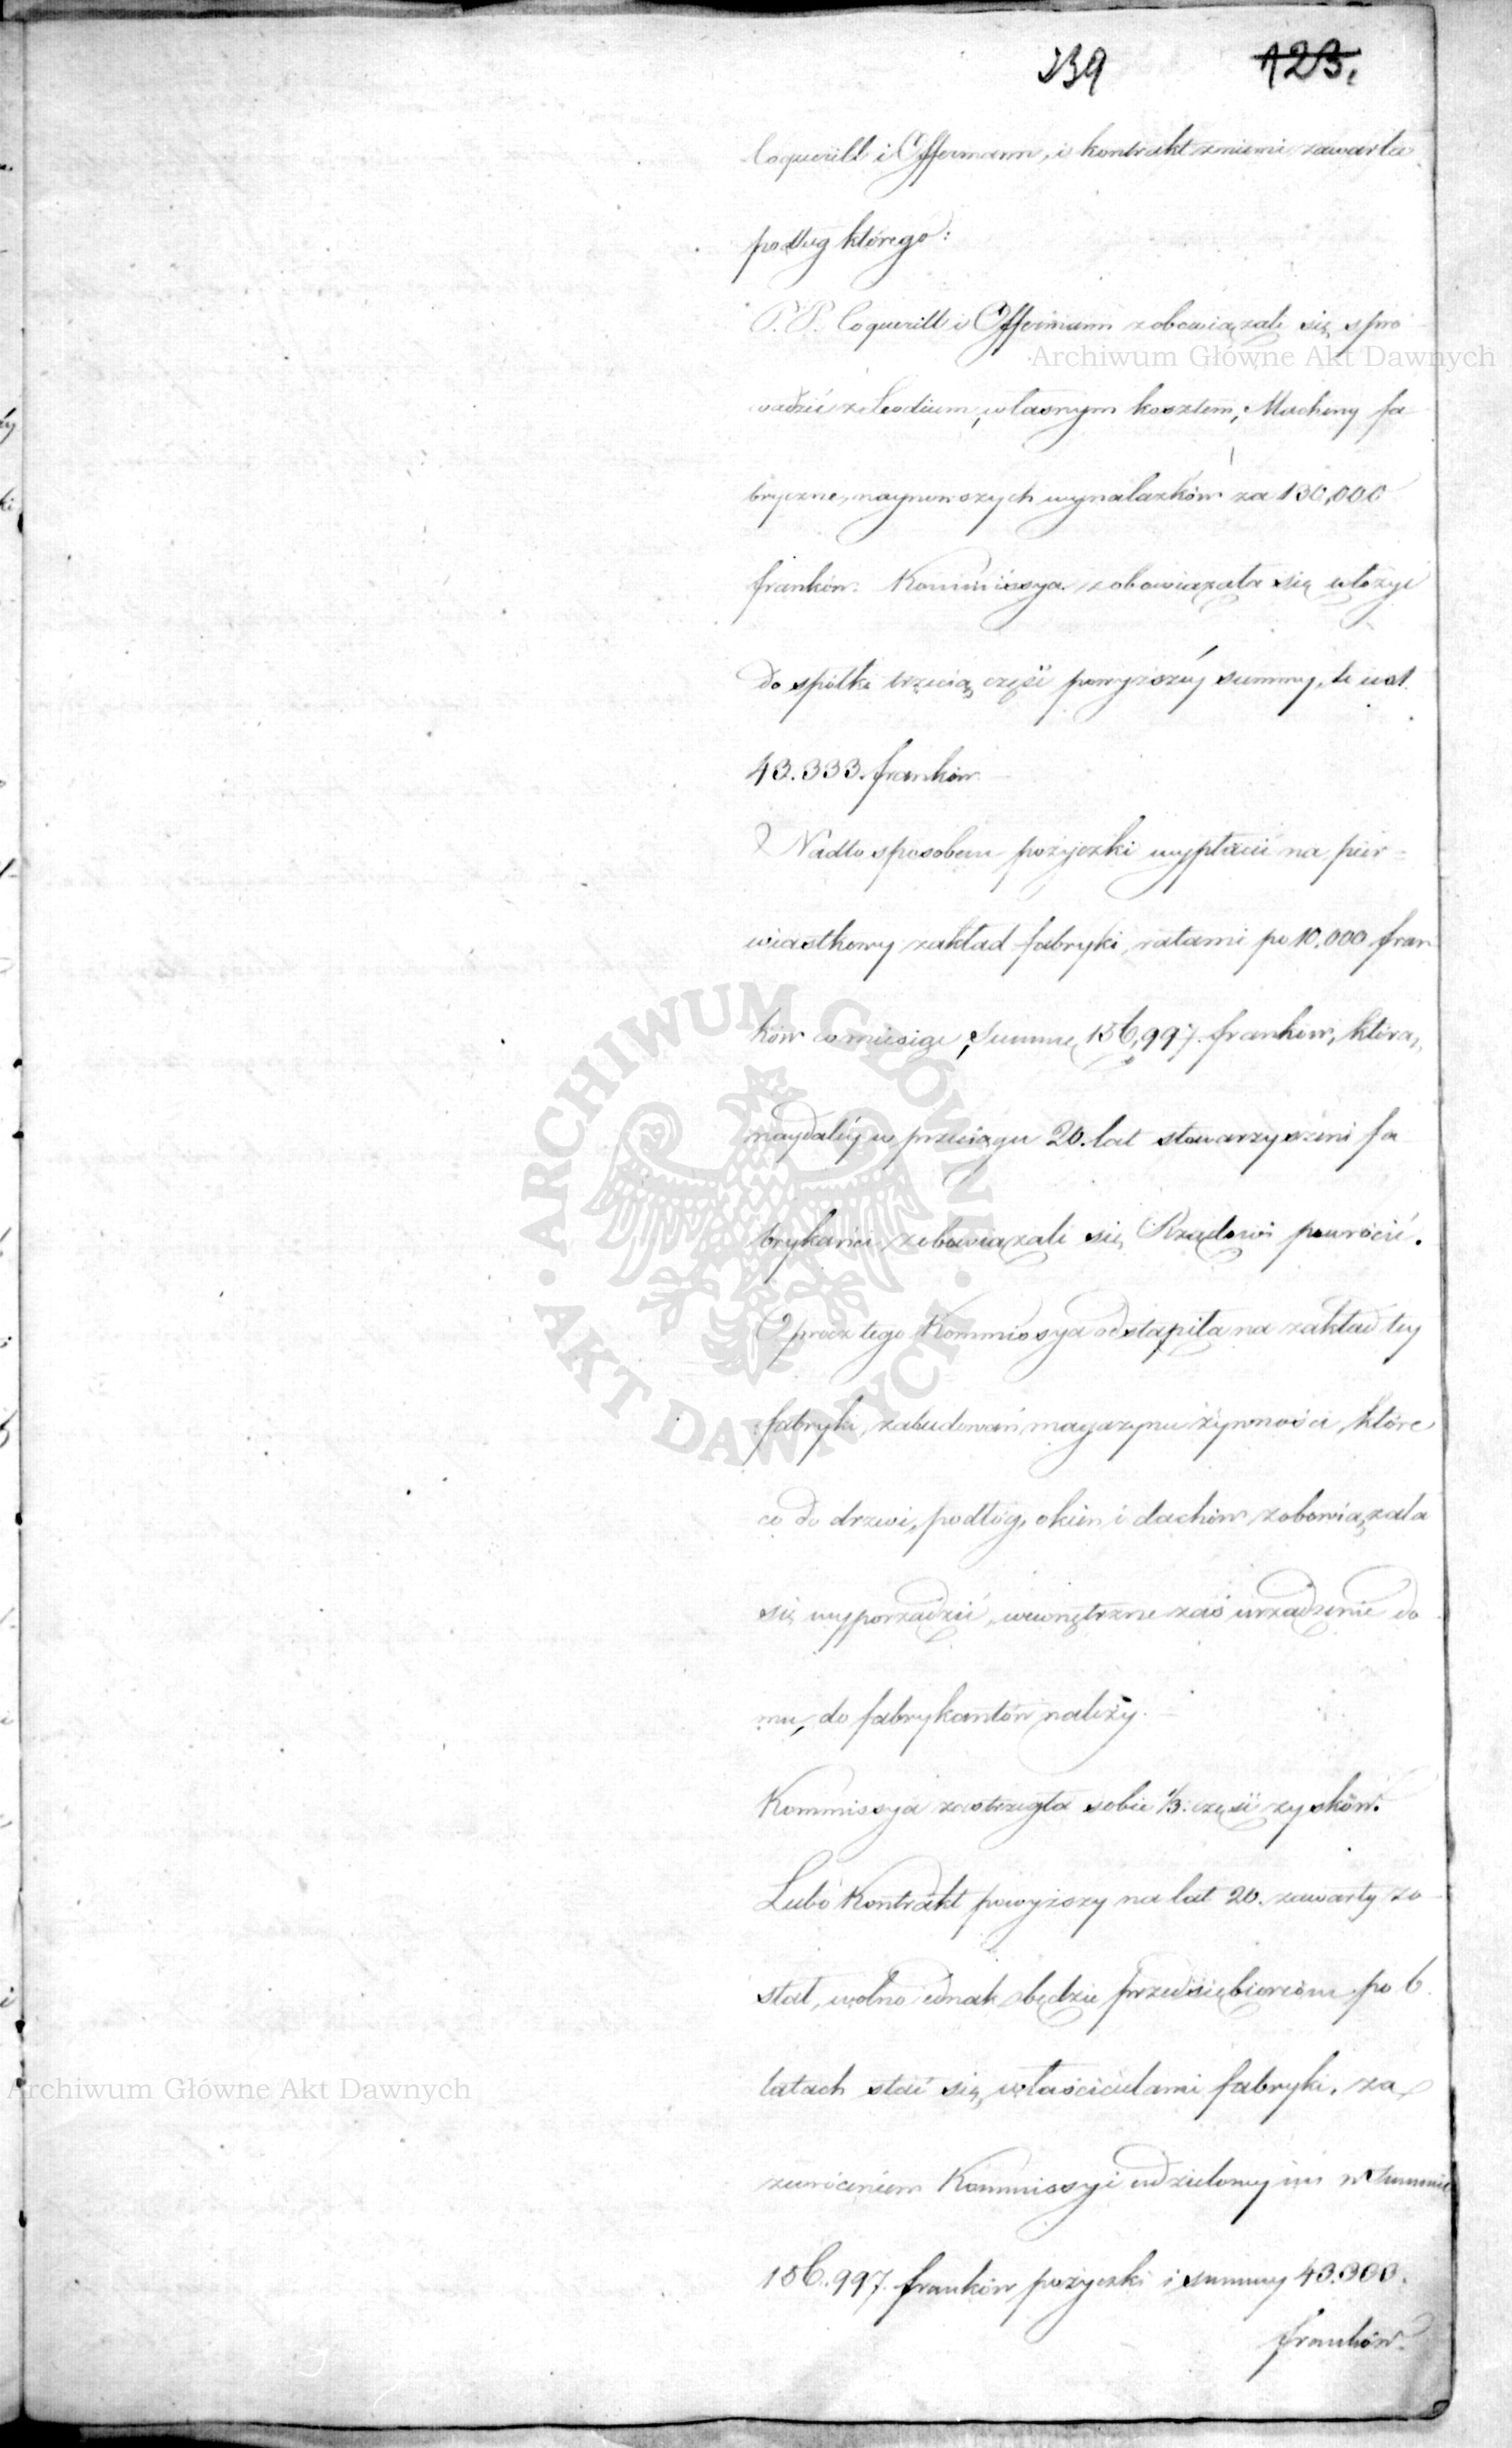 239 123.
Coquerill i Offermann, i kontrakt zniemi zawarła
podług którego:
P. P. Coquerill i Offermann zobowiązali się spro
Archiwum Główne Akt Dawnych
wadzić z Leodium, własnym kosztem, Machiny fa
bryczne, naynowszych wynalazków za 130,000
franków. Kommissya zobowiązała się włożyć
do spółki trzecią część powyższéy summy, to iest
43.333. franków.
Nadto sposobem pożyczki wypłacić na pier=
wiastkowy zakład fabryki, ratami po 10.000 fran
ków co miesiąc, Summę 156,997. franków, którą,
naydaléy w przeciągu 20. lat stowarzyszeni fa
brykańci zobowiązali się Rządowi powrócić.
Oprocz tego Kommissya odstąpiła na zakład téy
fabryki, zabudowań magazynu żywności, które
co do drzwi, podłóg, okien i dachów zobowiązała
się wyporządzić, wewnętrzne zaś urządzenie do
mu, do fabrykantów należy.
Kommissya zastrzegła sobie 1/3. część zysków.
Lubo Kontrakt powyższy na lat 20. zawarty zo
stał, wolno iednak będzie przedsiębiorcóm po 6.
latach stać się właścicielami fabryki, za
Archiwum Główne Akt Dawnych
zwróceniem Kommissyi udzieloney im w Summie
156.997. franków pożyczki i summy 43.333.
franków.
ARCHIWUM GŁÓWNE · AKT DAWNYCH ·